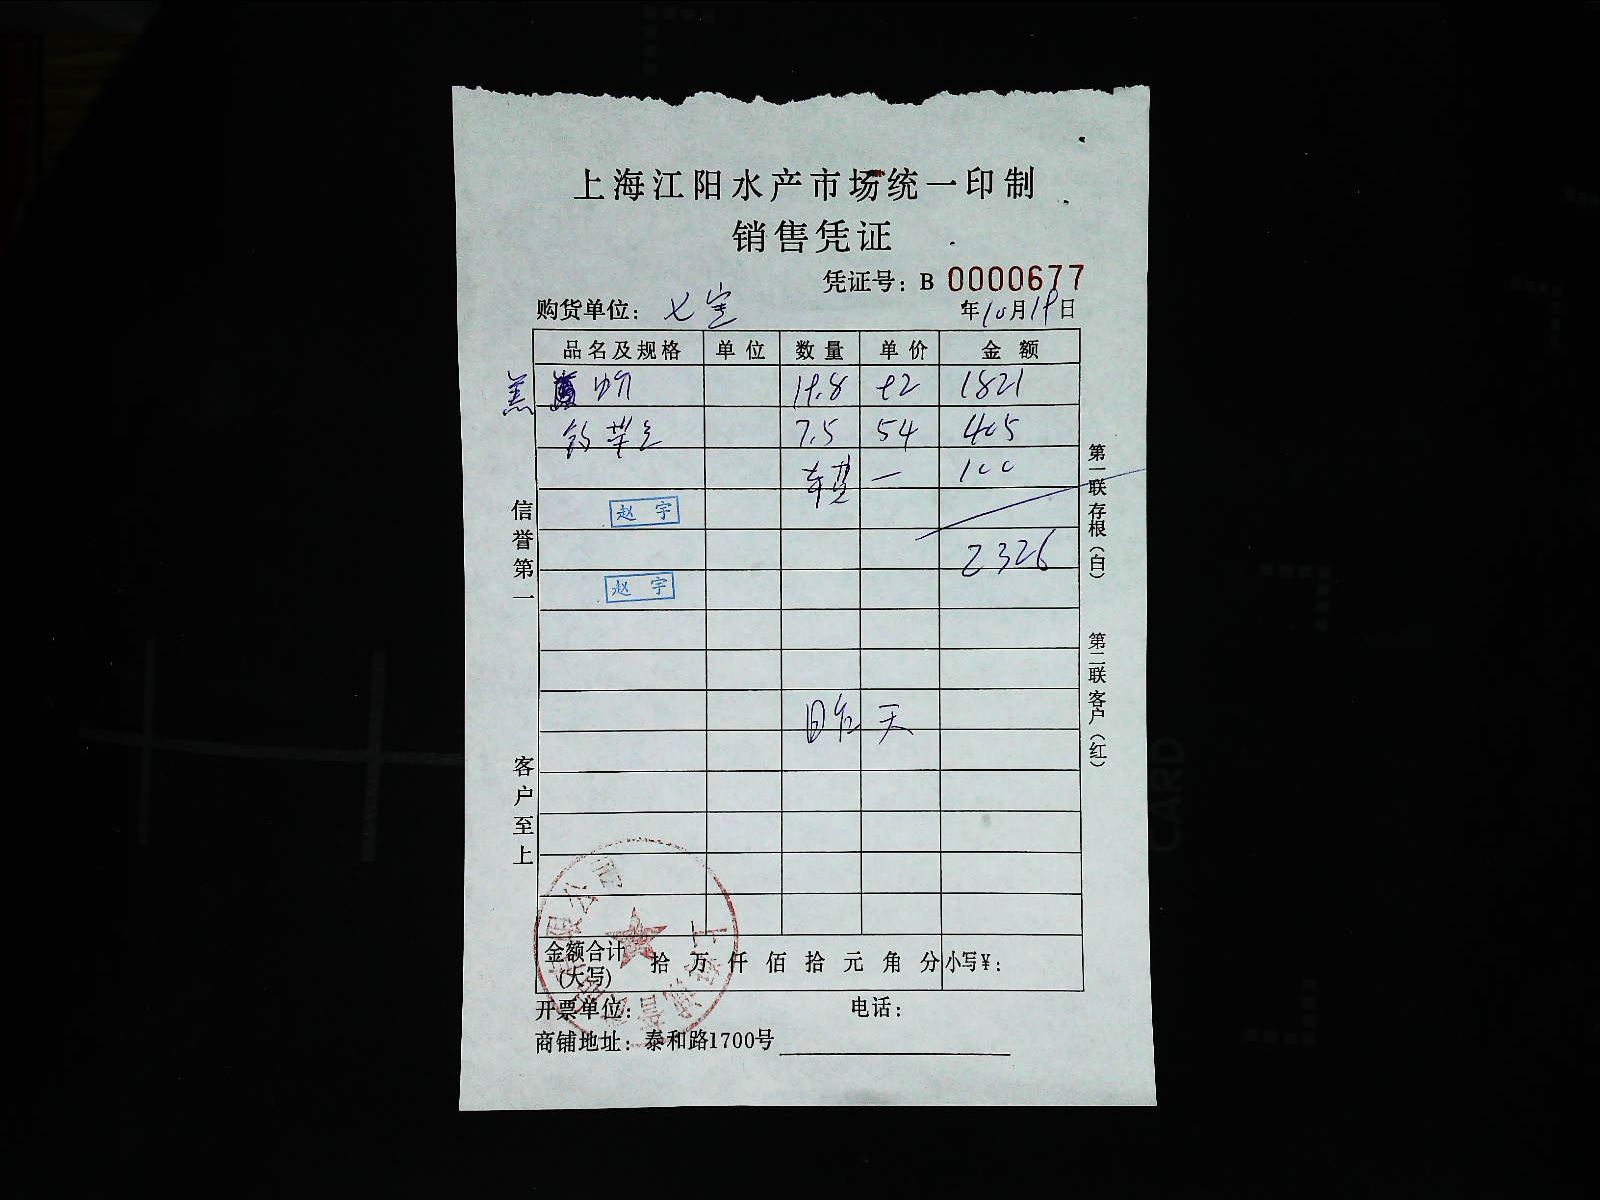 上海江阳水产市场统一印制
销售凭证
凭证号：B 0000677
购货单位：七宝 年10月19日
品名及规格 单位 数量 单价 金额
羔 19.8 92 1821
7.5 54 405
车费 一 100
赵宇
2326
赵宇
昨天
金额合计(大写) 拾 万 仟 佰 拾 元 角 分 小写¥：
开票单位： 电话：
商铺地址：泰和路1700号
信誉第一
客户至上
第一联存根（白）
第二联客户（红）